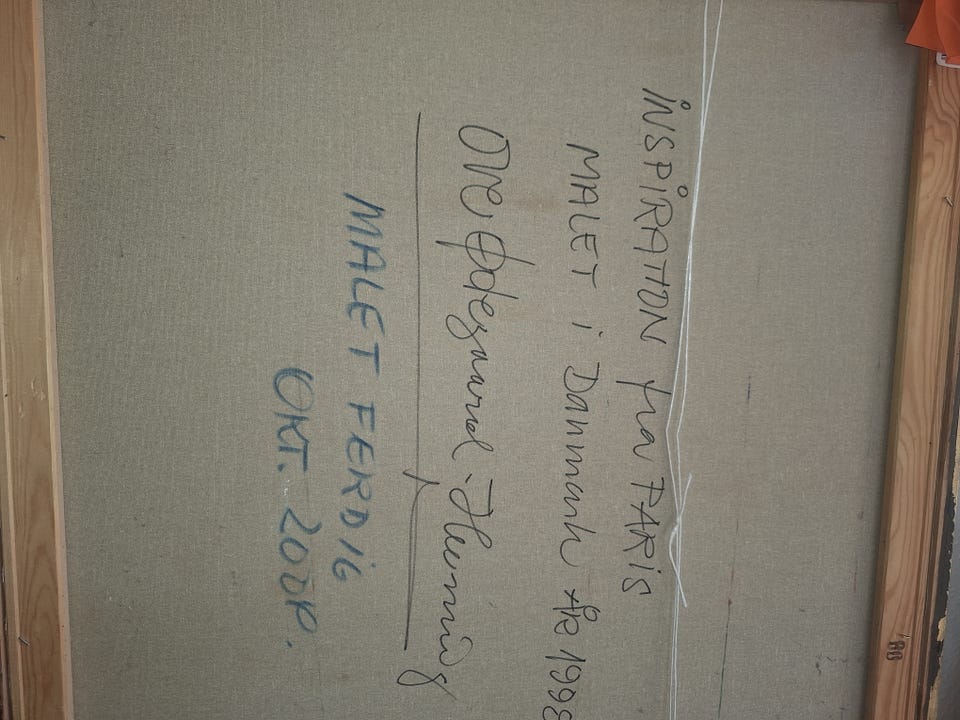 iNSPiRATiON fra PARiS
MALET i Danmark ÅR 1998
Ove Ødegaard
MALET FERDiG
OKT.